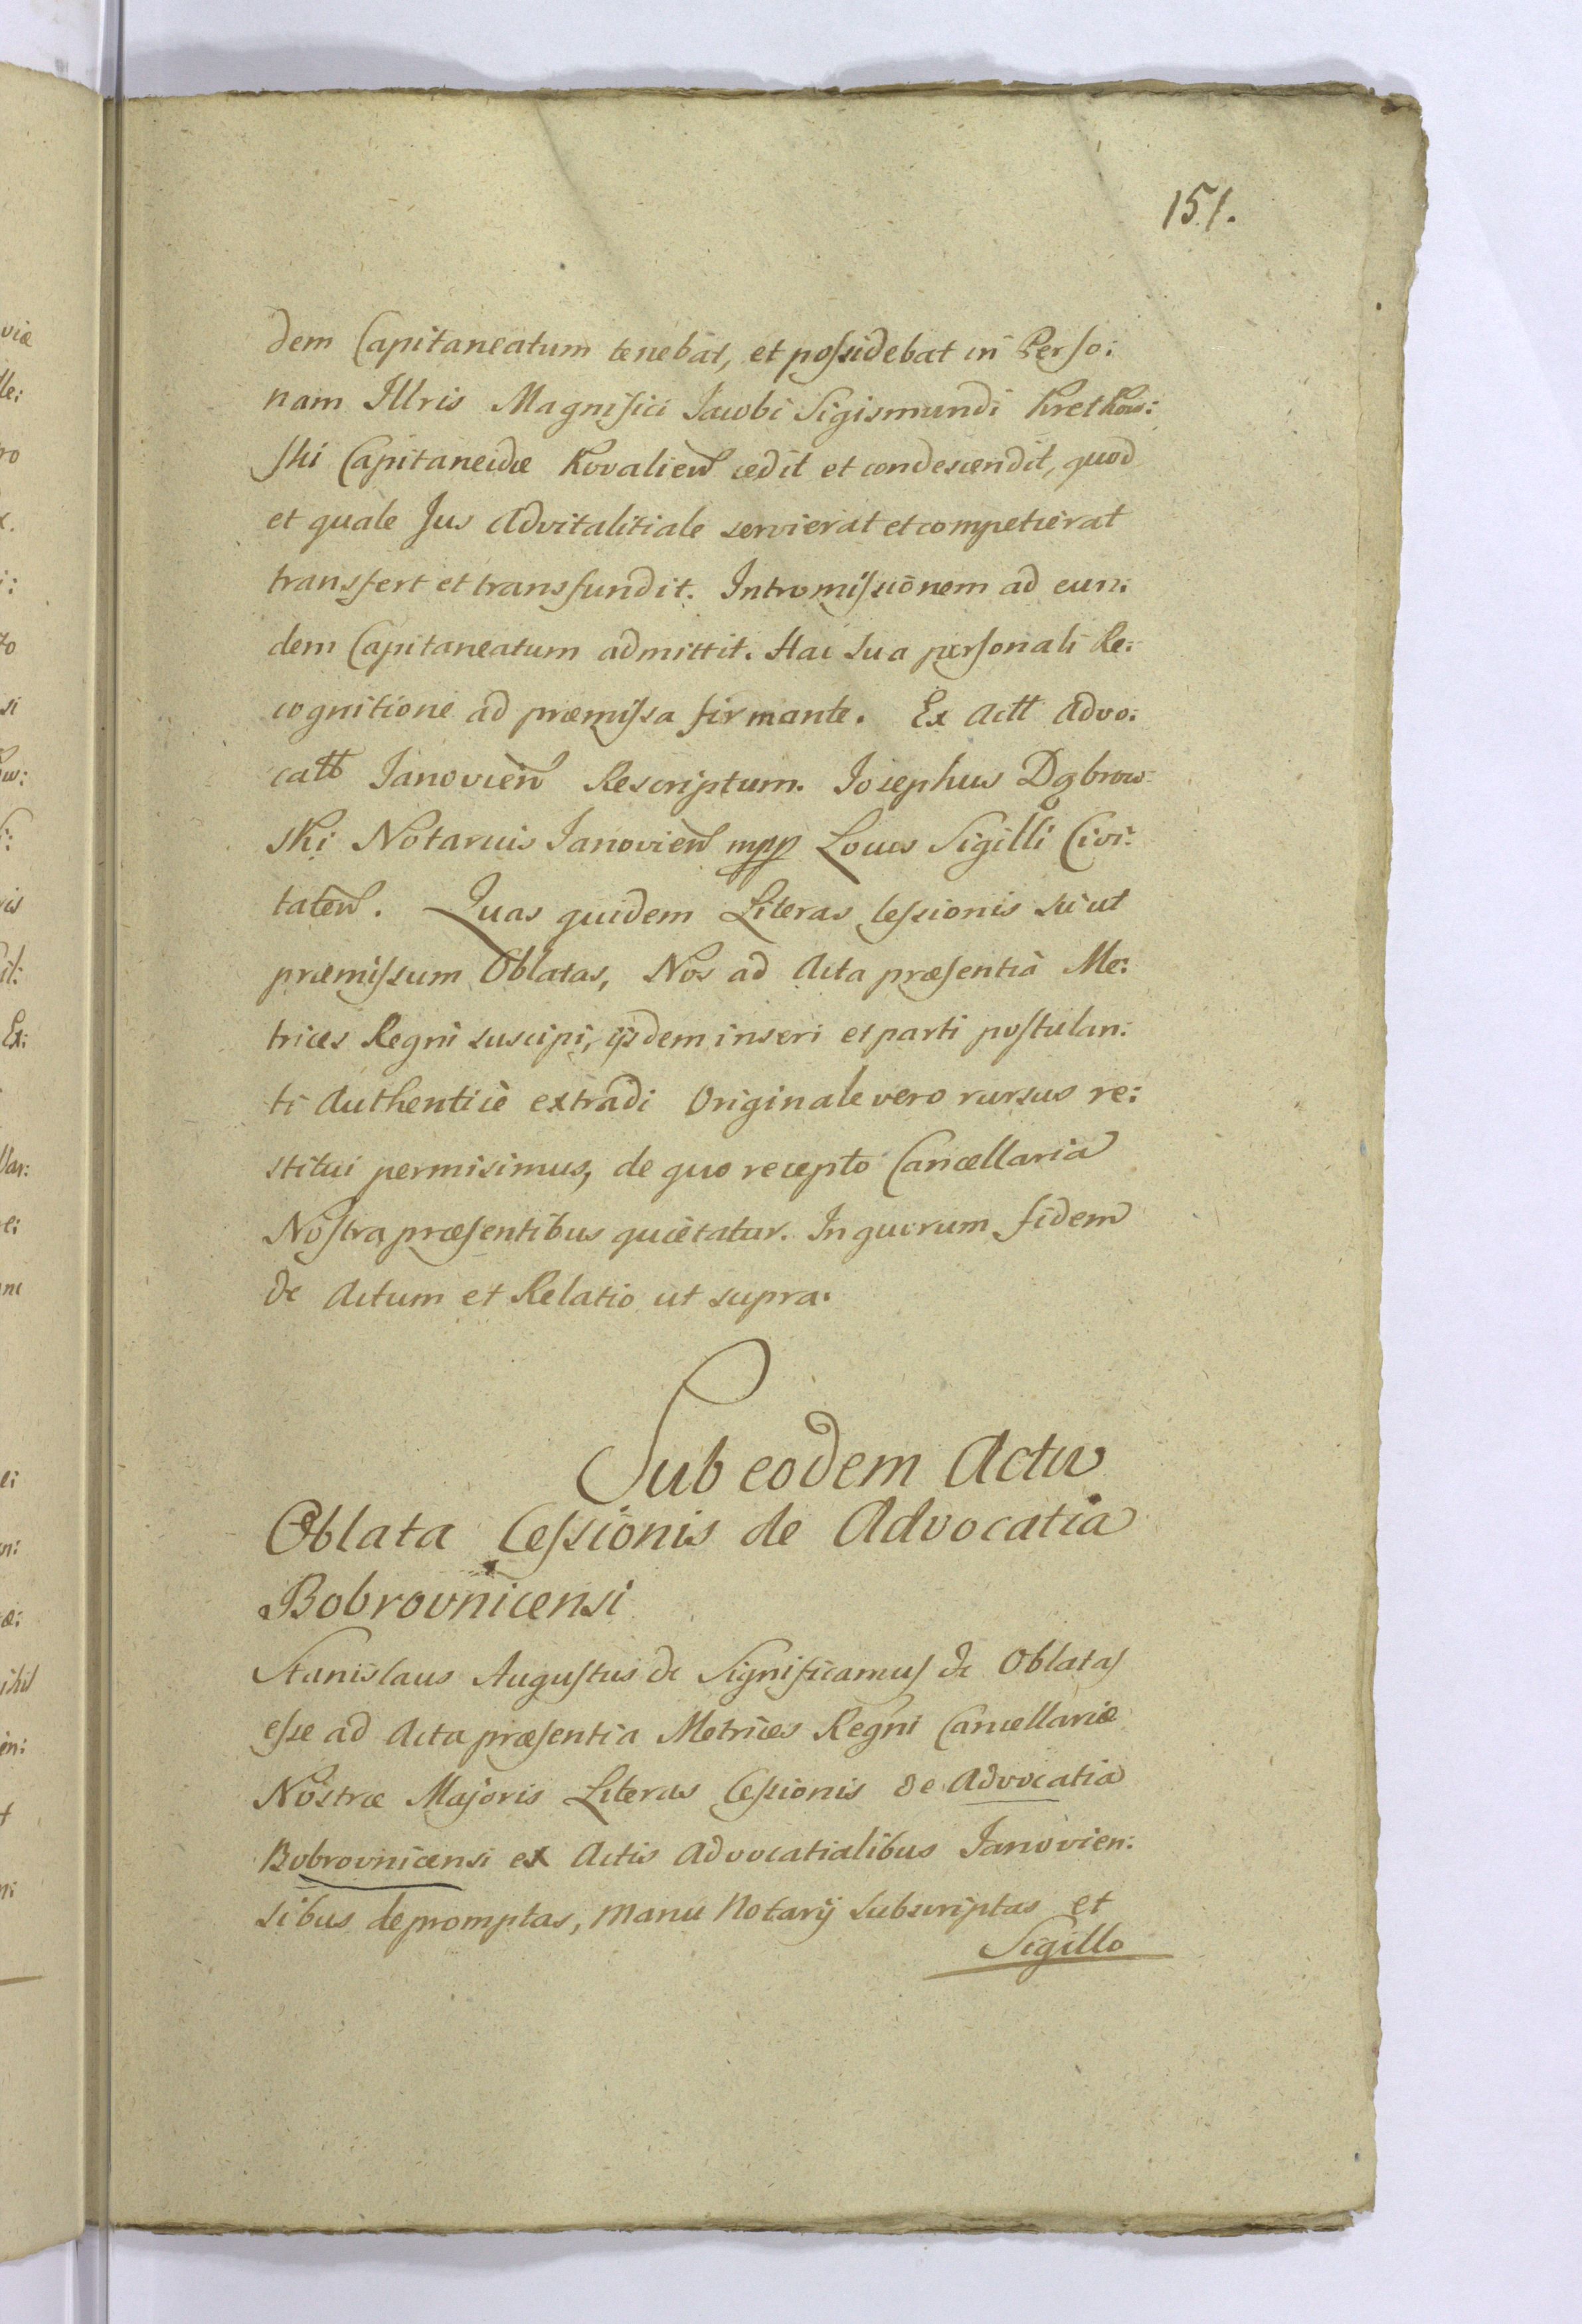 151.
dem Capitaneatum tenebat, et possidebat in Perso:
nam Illris Magnifici Jacobi Sigismundi Kretkow:
ski Capitaneidæ Kovalien cedit et condescendit, quod
et quale Jus Advitalitiale servierat et competierat
transfert et transfundit. Intromissionem ad eun:
dem Capitaneatum admittit. Hac sua personali Re:
cognitione ad præmissa firmante. Ex Actt Advo:
catt Janovien Rescriptum. Josephus Dąbrow:
ski Notarius Janovien mpp Locus Sigilli Civi:
taten. Quas quidem Literas Cessionis sicut
præmissum Oblatas, Nos ad Acta præsentia Me:
trices Regni suscipi, ijsdem inseri et parti postulan:
ti Authenticè extradi Originale vero rursus re:
stitui permisimus, de quo recepto Cancellaria
Nostra præsentibus quietatur. In quorum fidem
&c Actum et Relatio ut supra.
Sub eodem Actu
Oblata Cessionis de Advocatia
Bobrovnicensi
Stanislaus Augustus &c Significamus &c Oblatas
esse ad Acta præsentia Metrices Regni Cancellariæ
Nostræ Majoris Literas Cessionis de Advocatia
Bobrovnicensi ex Actis Advocatialibus Janovien:
sibus depromptas, manu Notarij subscriptas et
Sigillo